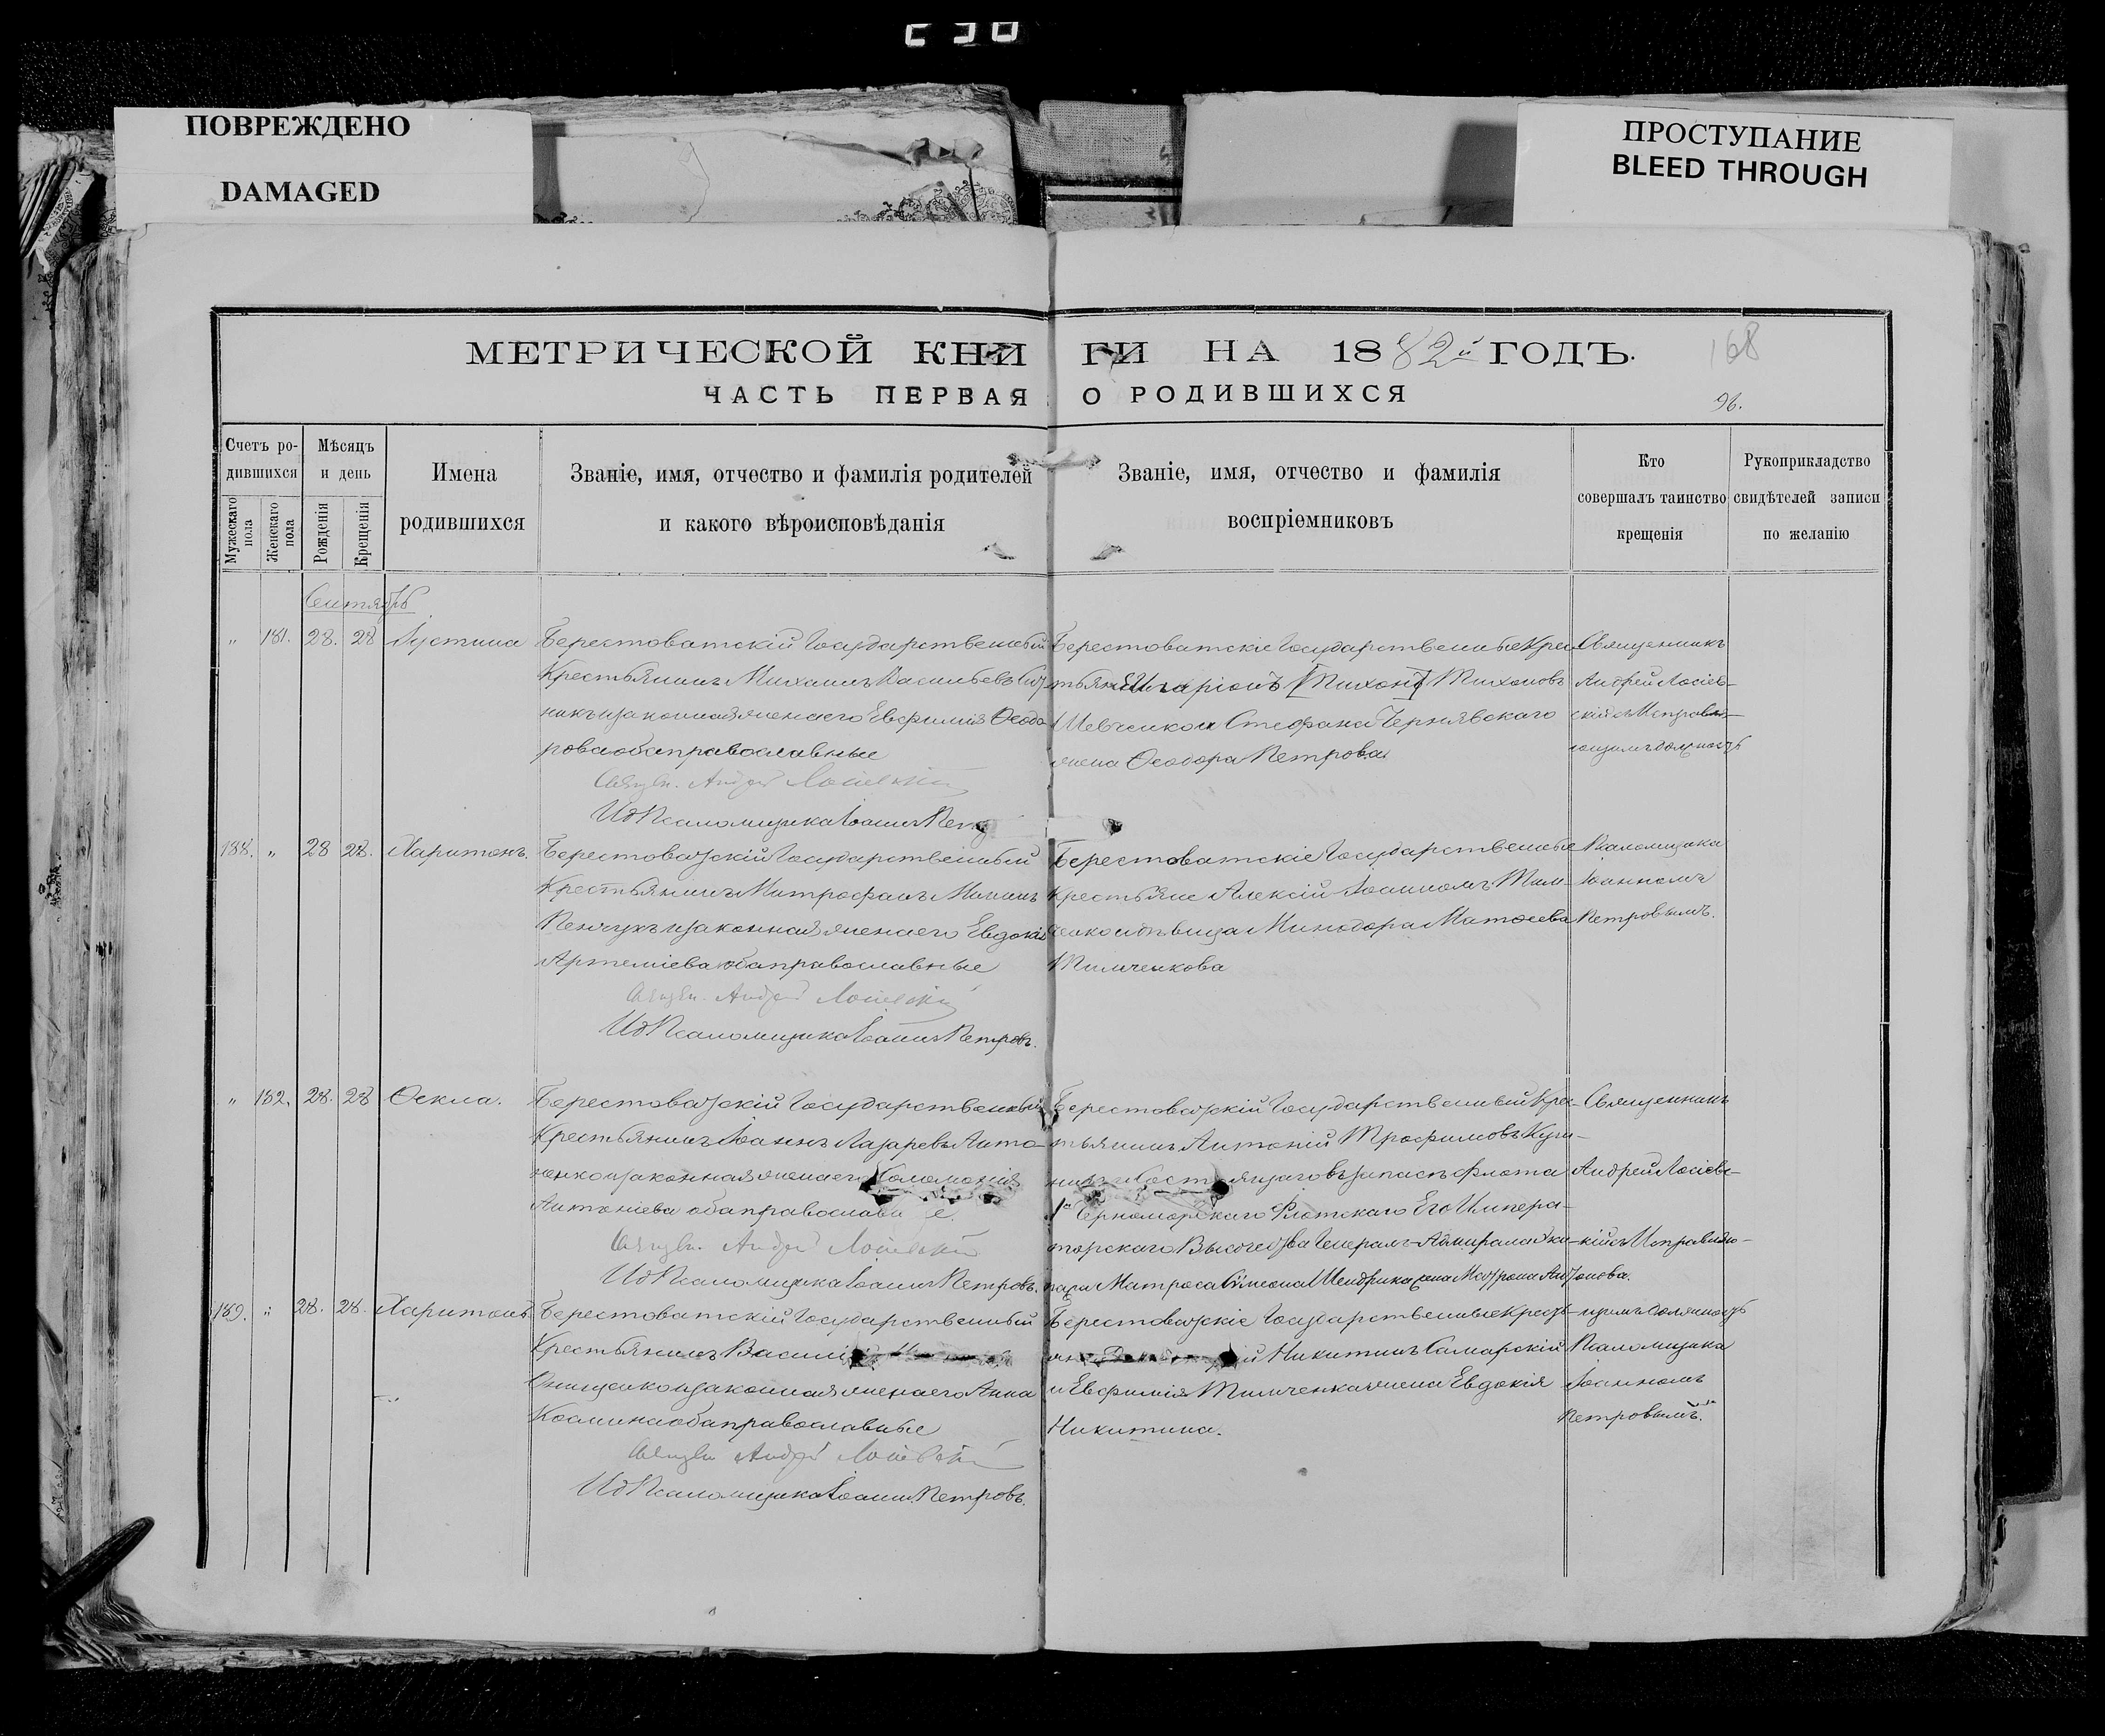 ПОВРЕЖДЕНО
DAMAGED
ПРОСТУПАНИЕ
BLEED THROUGH
МЕТРИЧЕСКОЙ КНИГИ НА 1882й ГОДЪ.
168
ЧАСТЬ ПЕРВАЯ О РОДИВШИХСЯ
96.
Счетъ родившихся
Мужескаго пола
Женскаго пола
Мѣсяцъ и день
Рожденія
Крещенія
Имена родившихся
Званіе, имя, отчество и фамилія родителей и какого вѣроисповѣданія
Званіе, имя, отчество и фамилія воспріемниковъ
Кто совершалъ таинство крещенія
Рукоприкладство свидѣтелей записи по желанію
Сентябрь
" 181. 28. 28 Іустина
Берестоватскій Государственный
Крестьянинъ Михаилъ Васильевъ
и законная жена его Евфимія Ѳеодо
рова оба православные
Священ. Андрей Лосіевскій
ИдПсаломщика Іоаннъ Петр
Берестоватскіе Государственные Кре
стьяне Иларіонъ Тихоновъ
Шевченко и Стефана Чернявскаго
жена Ѳеодора Петрова
Священникъ
Андрей Лосіев-
скій съ Исправля-
ющимъ должность
188. " 28 28. Харитонъ.
Берестоватскій Государственный
Крестьянинъ Митрофанъ Мининъ
и законная жена его Евдокія
Артеміева оба православные
Священ. Андрей Лосіевскій
ИдПсаломщика Іоаннъ Петровъ.
Берестоватскіе Государственные
Крестьяне Алексій Іоанновъ Тим-
ченко и дѣвица Минодора Матѳеева
Тимченкова
Псаломщика
Іоанномъ
Петровымъ.
" 182. 28. 28 Ѳекла.
Берестоватскій Государственный
Крестьянинъ Іоаннъ Лазаревъ Анто-
ненко и законная жена его Соломонія
Антоніева оба православные.
Священ. Андрей Лосіевскій
ИдПсаломщика Іоаннъ Петровъ.
Берестоватскій Государственный Кре-
стьянинъ Антоній Трофимовъ
въ запасѣ флота
1го Черноморскаго Флотскаго Его Импера-
торскаго Высочества Генералъ-Адмирала Эки-
пажа Матроса Симеона жена Матрона Антонова.
Священникъ
Андрей Лосіев-
скій съ Исправля-
189. " 28. 28. Харитонъ
Берестоватскій Государственный
Крестьянинъ Василій
Онищенко и законная жена его Анна
Космина оба православные
Священ Андрей Лосіевскій
ИдПсаломщика Іоаннъ Петровъ.
Берестоватскіе Государственные Кресть-
яне Никитинъ Самарскій
и Евфимія Тимченка жена Евдокія
Никитина.
ющимъ должность
Псаломщика
Іоанномъ
Петровымъ.